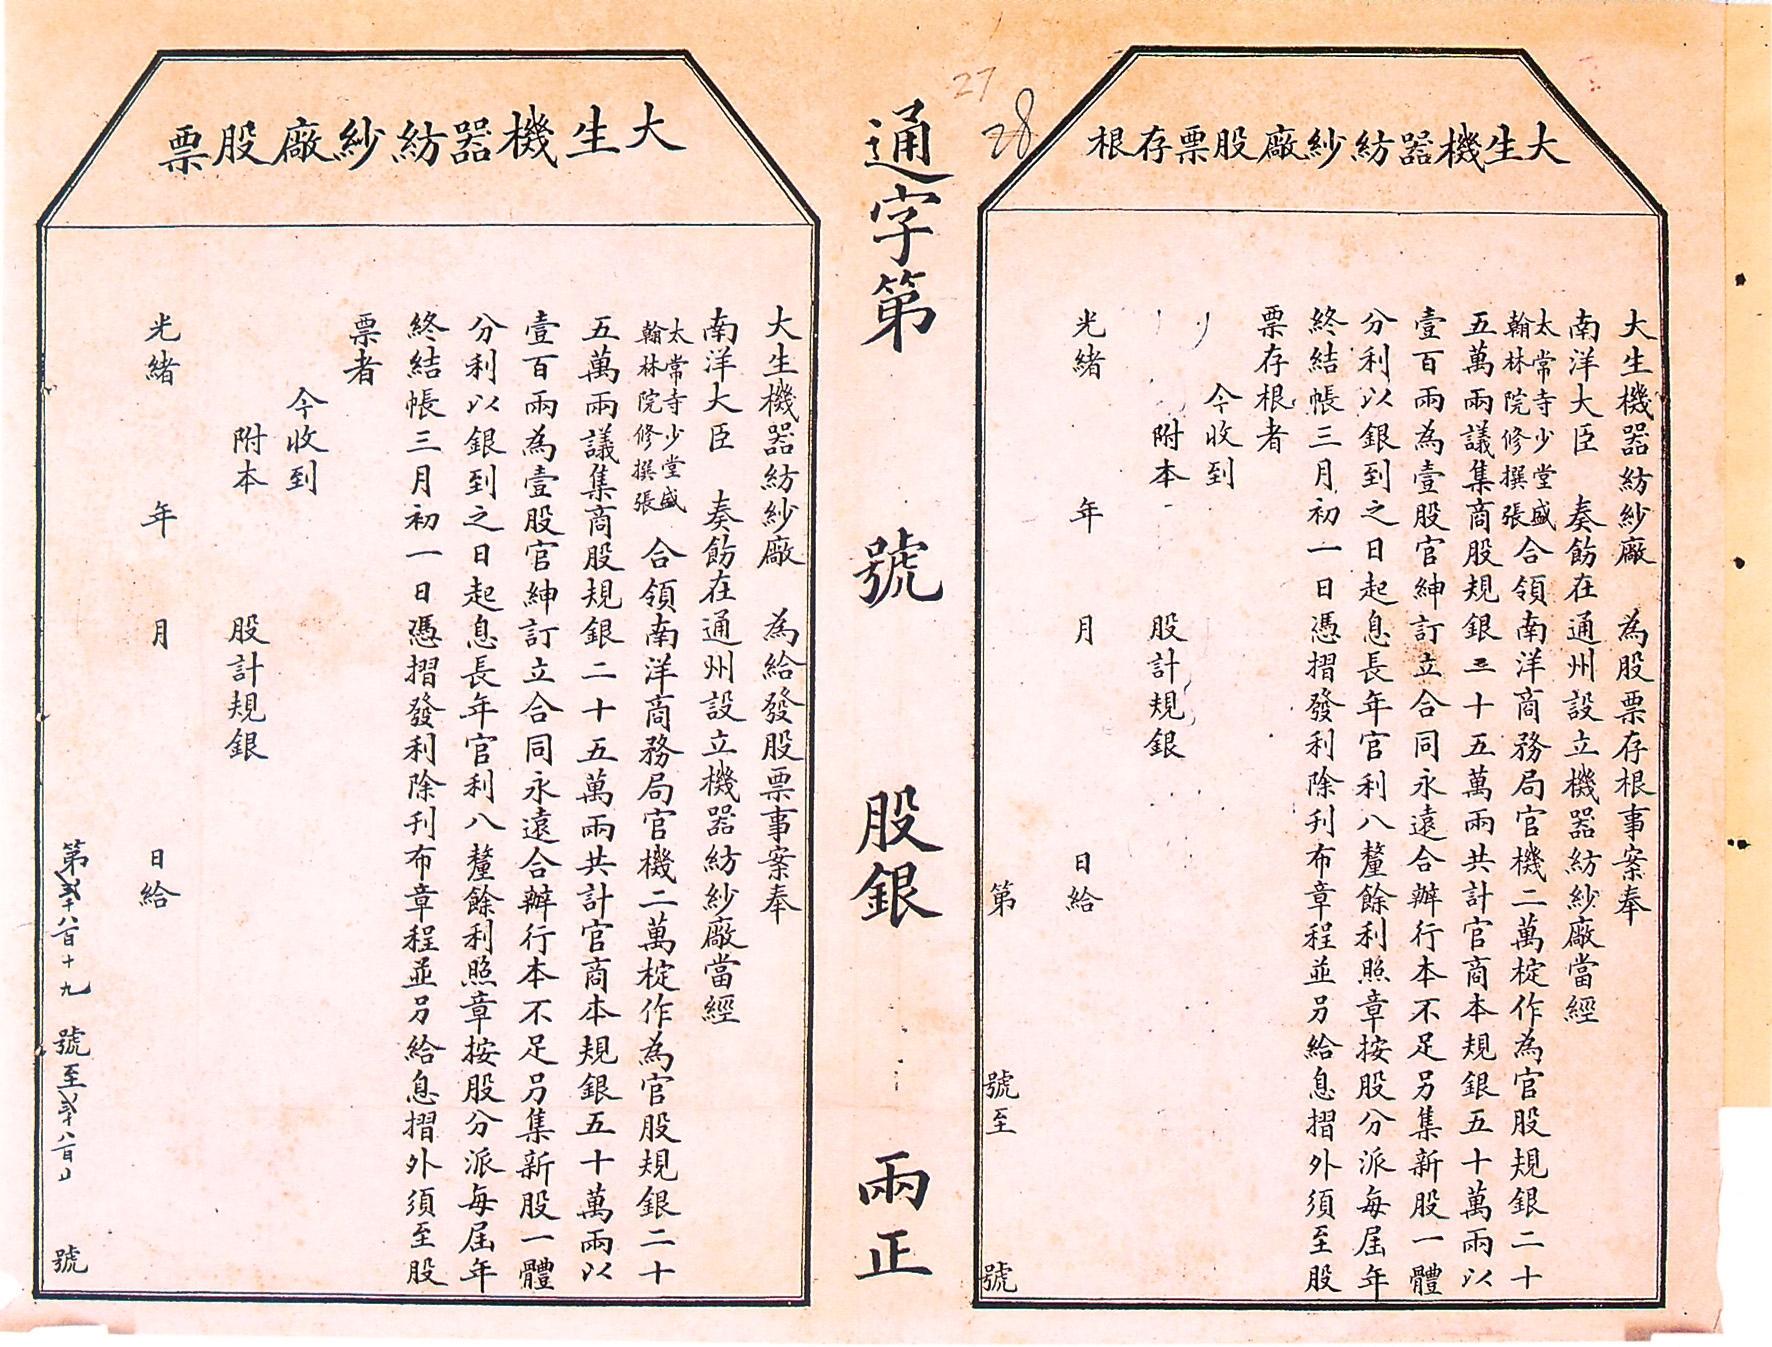 大生機器紡紗廠股票存根
大生機器紡紗廠 為股票存根事案奉
南洋大臣 奏飭在通州設立機器紡紗廠當經
太常寺少堂盛
翰林院修撰張
合領南洋商務局官機二萬椗作為官股規銀二十
五萬兩議集商股規銀二十五萬兩共計官商本規銀五十萬兩以
壹百兩為壹股官紳訂立合同永遠合辦行本不足另集新股一體
分利以銀到之日起息長年官利八釐餘利照章按股分派每屆年
終結帳三月初一日憑摺發利除刋布章程並另給息摺外須至股
票存根者
今收到
附本 股計規銀
光緒 年 月 日給
第 號至 號
27
28
通字第 號 股銀 兩正
大生機器紡紗廠股票
大生機器紡紗廠 為給發股票事案奉
南洋大臣 奏飭在通州設立機器紡紗廠當經
太常寺少堂盛
翰林院修撰張
合領南洋商務局官機二萬椗作為官股規銀二十
五萬兩議集商股規銀二十五萬兩共計官商本規銀五十萬兩以
壹百兩為壹股官紳訂立合同永遠合辦行本不足另集新股一體
分利以銀到之日起息長年官利八釐餘利照章按股分派每屆年
終結帳三月初一日憑摺發利除刋布章程並另給息摺外須至股
票者
今收到
附本 股計規銀
光緒 年 月 日給
第 八百十九 號至 八百 號